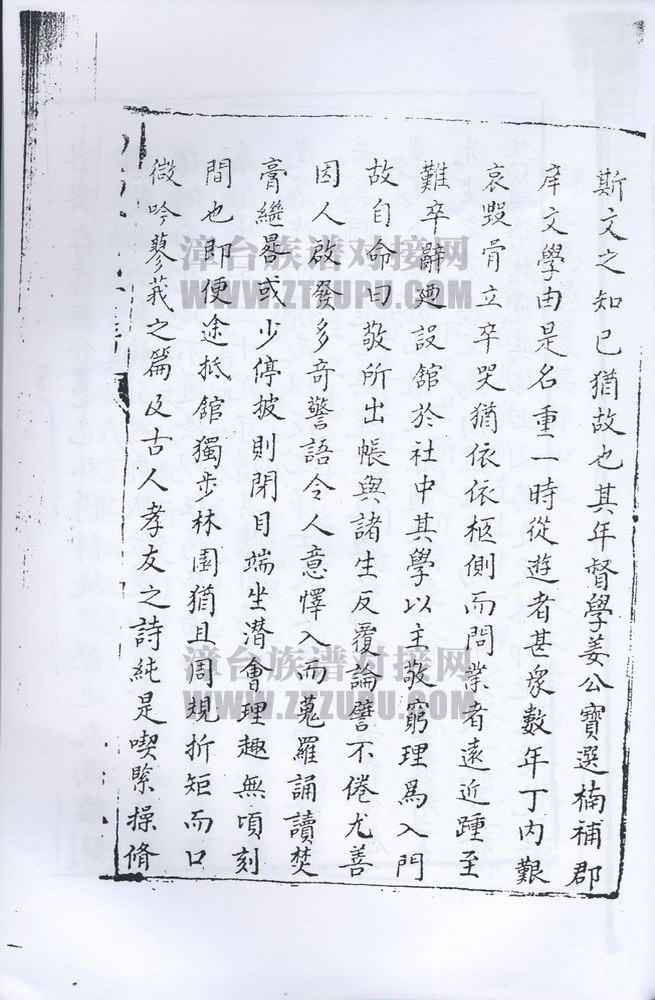 斯文之知已猶故也其年督學姜公寶選楠補郡
庠文學由是名重一時從遊者甚衆數年丁內艱
哀毀骨立卒哭猶依依柩側而問業者遠近踵至
難卒辭廼設舘於社中其學以主敬窮理爲入門
故自命曰敬所出帳與諸生反覆論譬不倦尤善
因人啟發多奇警語令人意懌入而蒐羅誦讀焚
膏繼晷或少停披則閉目端坐潛會理趣無頃刻
間也即便途抵舘獨步林園猶且周規折矩而口
微吟蓼莪之篇及古人孝友之詩純是喫緊操脩
漳台族谱对接网
WWW.ZTZUPU.COM
漳台族谱对接网
WWW.ZTZUPU.COM